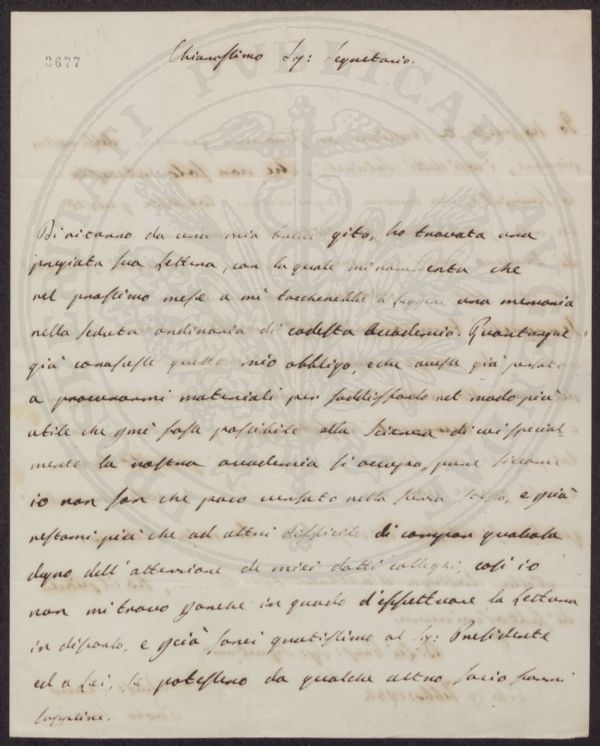 3677
Chiarissimo Sig: Segretario.
Di ritorno da una mia breve gito, ho trovata una
pregiata sua Lettera, con la quale mi rammenta che
nel prossimo mese a mi toccherebbe a leggere una memoria
nella seduta ordinaria di codesta Accademia. Quantunque
già conoscessi questo mio obbligo, e che avessi già pensato
a procurarmi materiali per soddisfarlo nel modo più
utile che mi fosse possibile alla Scienza di cui special-
mente la nostra accademia si occupa, pure siccome
io non son che poco versato nella stessa, e già
restami più che ad altri difficile di compor qualcosa
degno dell'attenzione de miei dotti colleghi, così io
non mi trovo in grado d'effettuare la Lettura
in discorso, e sarei gratissimo al Sig: Presidente
ed a Lei, se potessero da qualche altro socio farmi
supplire.